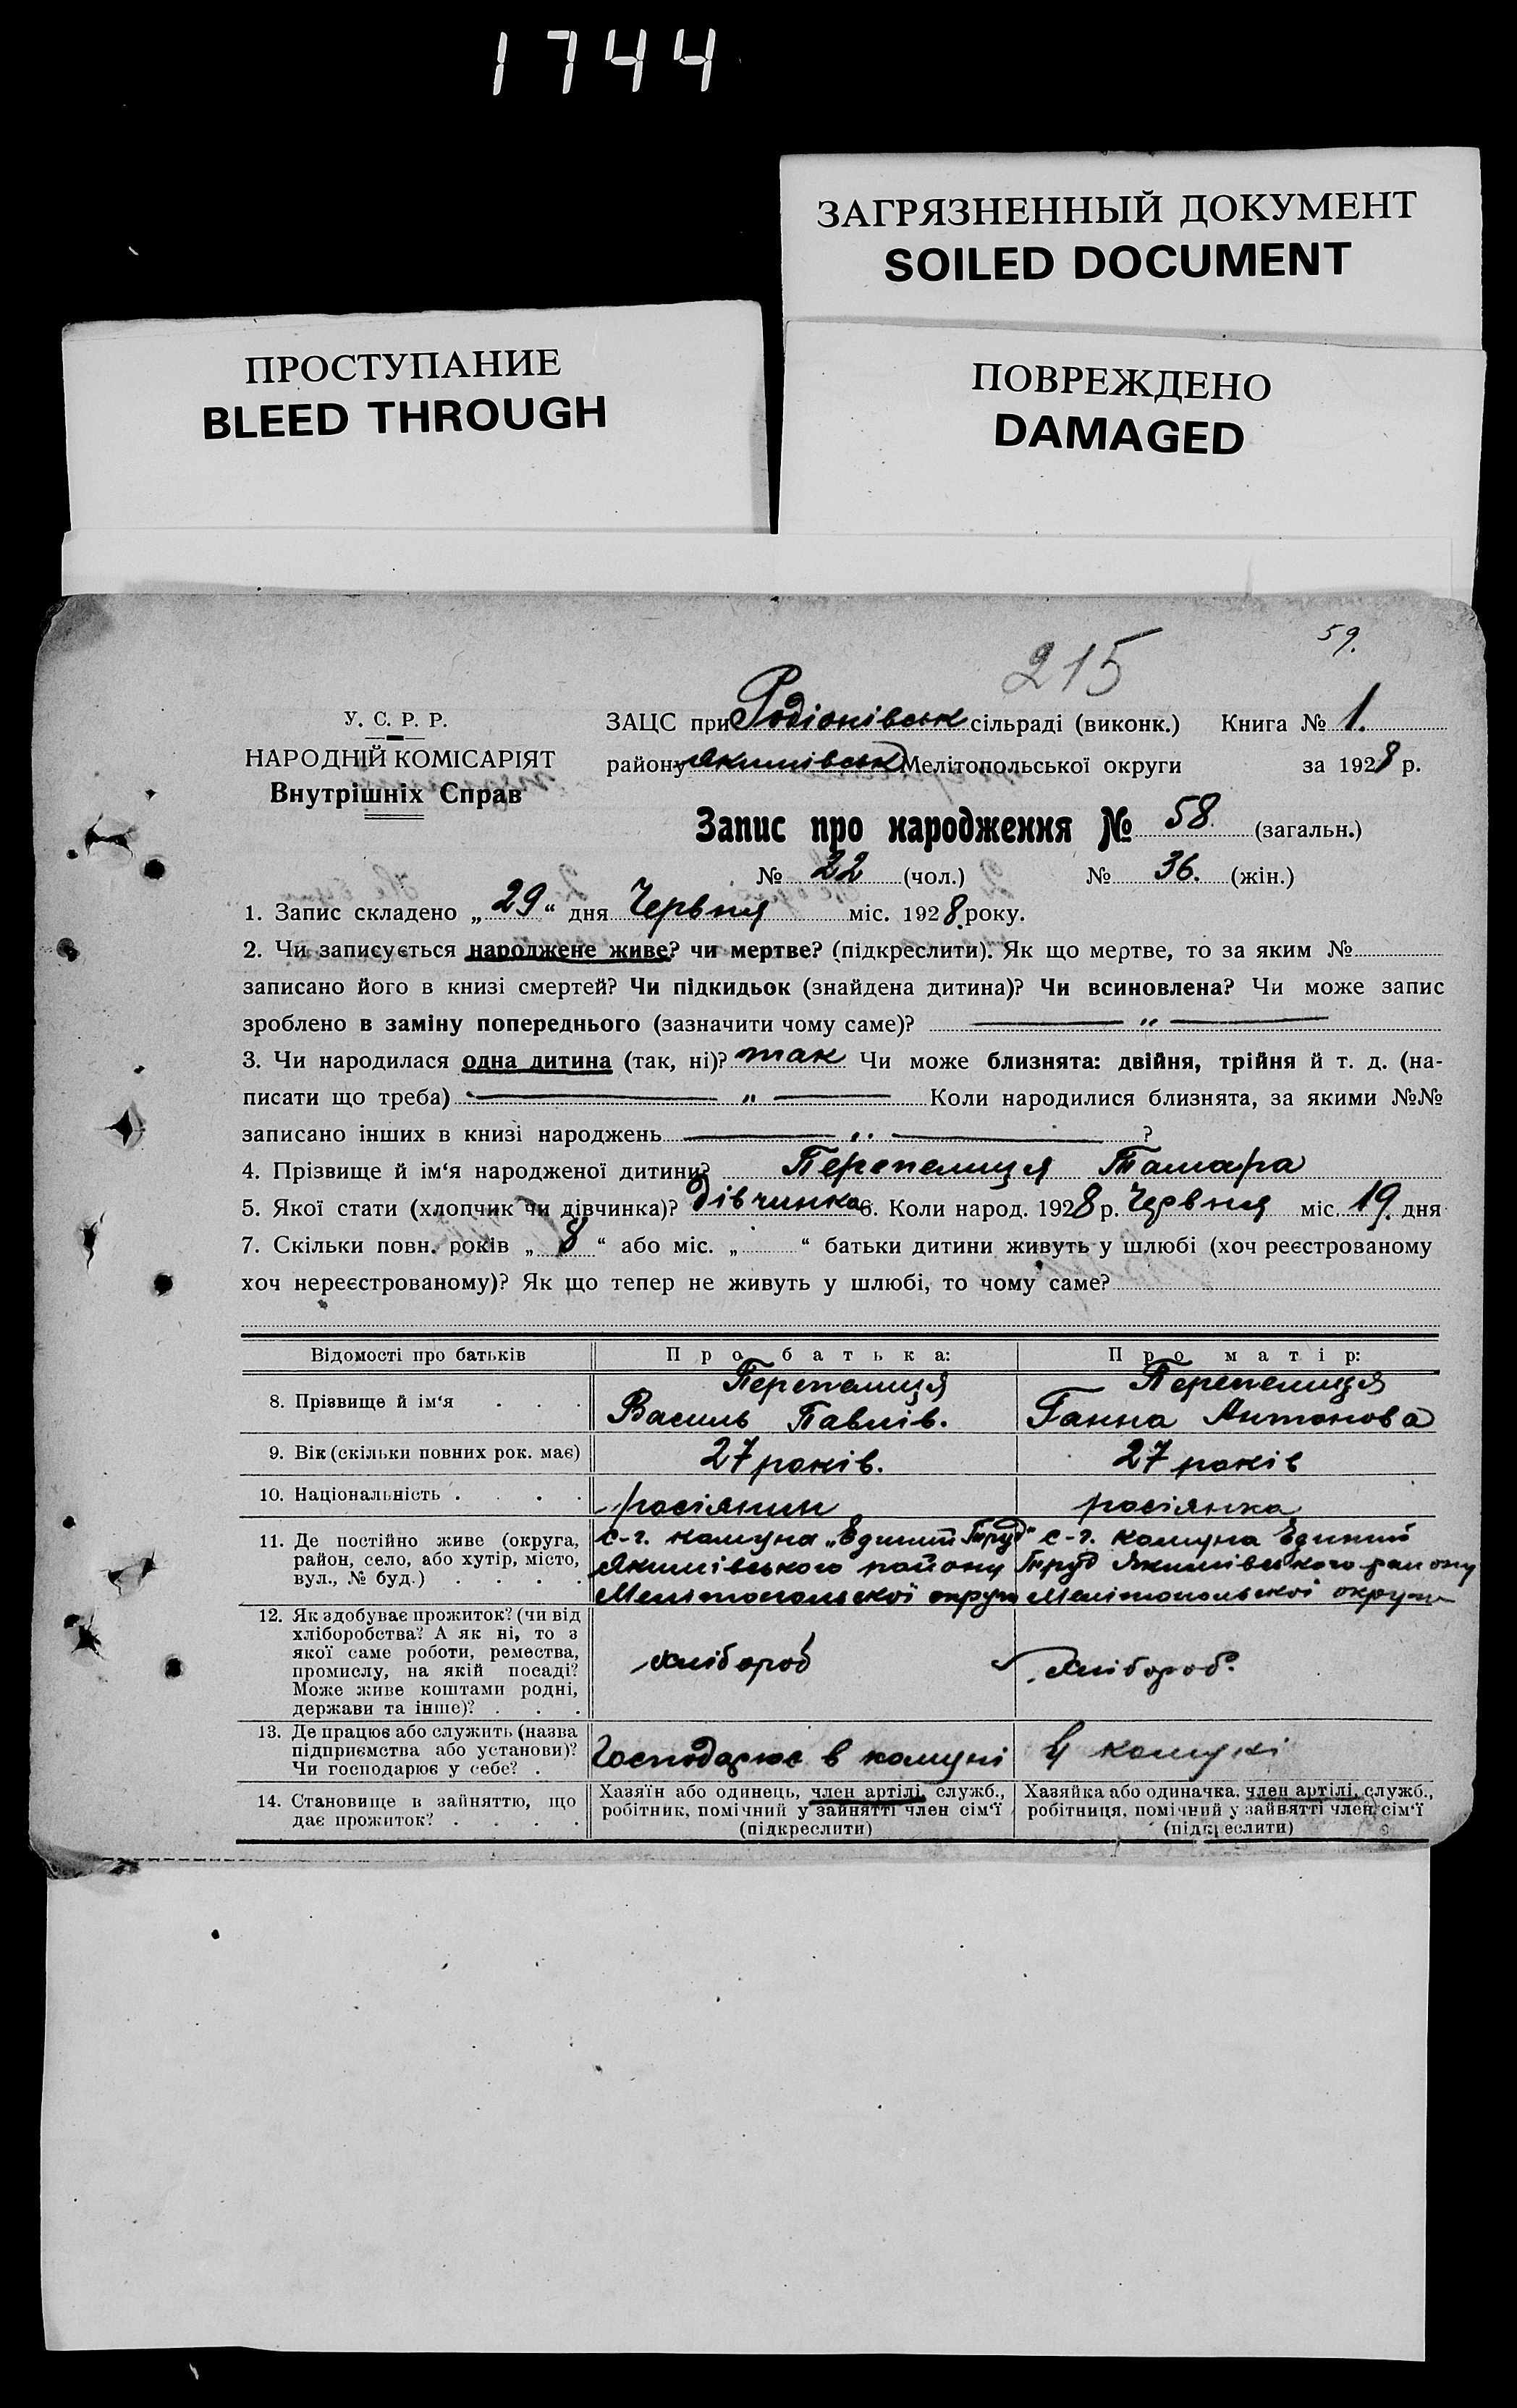 1744
ЗАГРЯЗНЕННЫЙ ДОКУМЕНТ
SOILED DOCUMENT
ПРОСТУПАНИЕ
BLEED THROUGH
ПОВРЕЖДЕНО
DAMAGED
59.
215
У. С. Р. Р.
НАРОДНІЙ КОМІСАРІЯТ
Внутрішніх Справ
ЗАЦС при Родіонівськ сільраді (виконк.) Книга № 1.
району Якимівськ Мелітопольської округи за 1928 р.
Запис про народження № 58. (загальн.)
№ 22 (чол.) № 36. (жін.)
1. Запис складено „ 29 “ дня Червня міс. 1928 року.
2. Чи записується народжене живе? чи мертве? (підкреслити). Як що мертве, то за яким №
записано його в книзі смертей? Чи підкидьок (знайдена дитина)? Чи всиновлена? Чи може запис
зроблено в заміну попереднього (зазначити чому саме)? — „ —
3. Чи народилася одна дитина (так, ні)? так Чи може близнята: двійня, трійня й т. д. (на-
писати що треба) — „ — Коли народилися близнята, за якими №№
записано інших в книзі народжень — „ — ?
4. Прізвище й ім‘я народженої дитини? Перепелиця Тамара
5. Якої стати (хлопчик чи дівчинка)? дівчинка 6. Коли народ. 1928 р. Червня міс. 19. дня
7. Скільки повн. років „ 8 “ або міс. „ “ батьки дитини живуть у шлюбі (хоч реєстрованому
хоч нереєстрованому)? Як що тепер не живуть у шлюбі, то чому саме?
Відомості про батьків Про батька: Про матір:
8. Прізвище й ім‘я . . .
Перепелиця
Василь Павлів.
Перепелиця
Ганна Антонова
9. Вік (скільки повних рок. має) 27 років. 27 років
10. Національність . . . . росіянин росіянка
11. Де постійно живе (округа,
район, село, або хутір, місто,
вул., № буд.) . . . .
с-г. комуна „Єдиний Труд“
Якимівського району
Мелітопольської округи
с-г. комуна Єдиний
Труд Якимівського району
Мелітопольської округи
12. Як здобуває прожиток? (чи від
хліборобства? А як ні, то з
якої саме роботи, ремества,
промислу, на якій посаді?
Може живе коштами родні,
держави та інше)? . . .
хлібороб
хлібороб.
13. Де працює або служить (назва
підприємства або установи)?
Чи господарює у себе? .
Господарює в комуні
У комуні
14. Становище в зайняттю, що
дає прожиток? . . . .
Хазяїн або одинець, член артілі, служб.,
робітник, помічний у зайнятті член сім‘ї
(підкреслити)
Хазяйка або одиначка, член артілі, служб.,
робітниця, помічний у зайнятті член сім‘ї
(підкреслити)